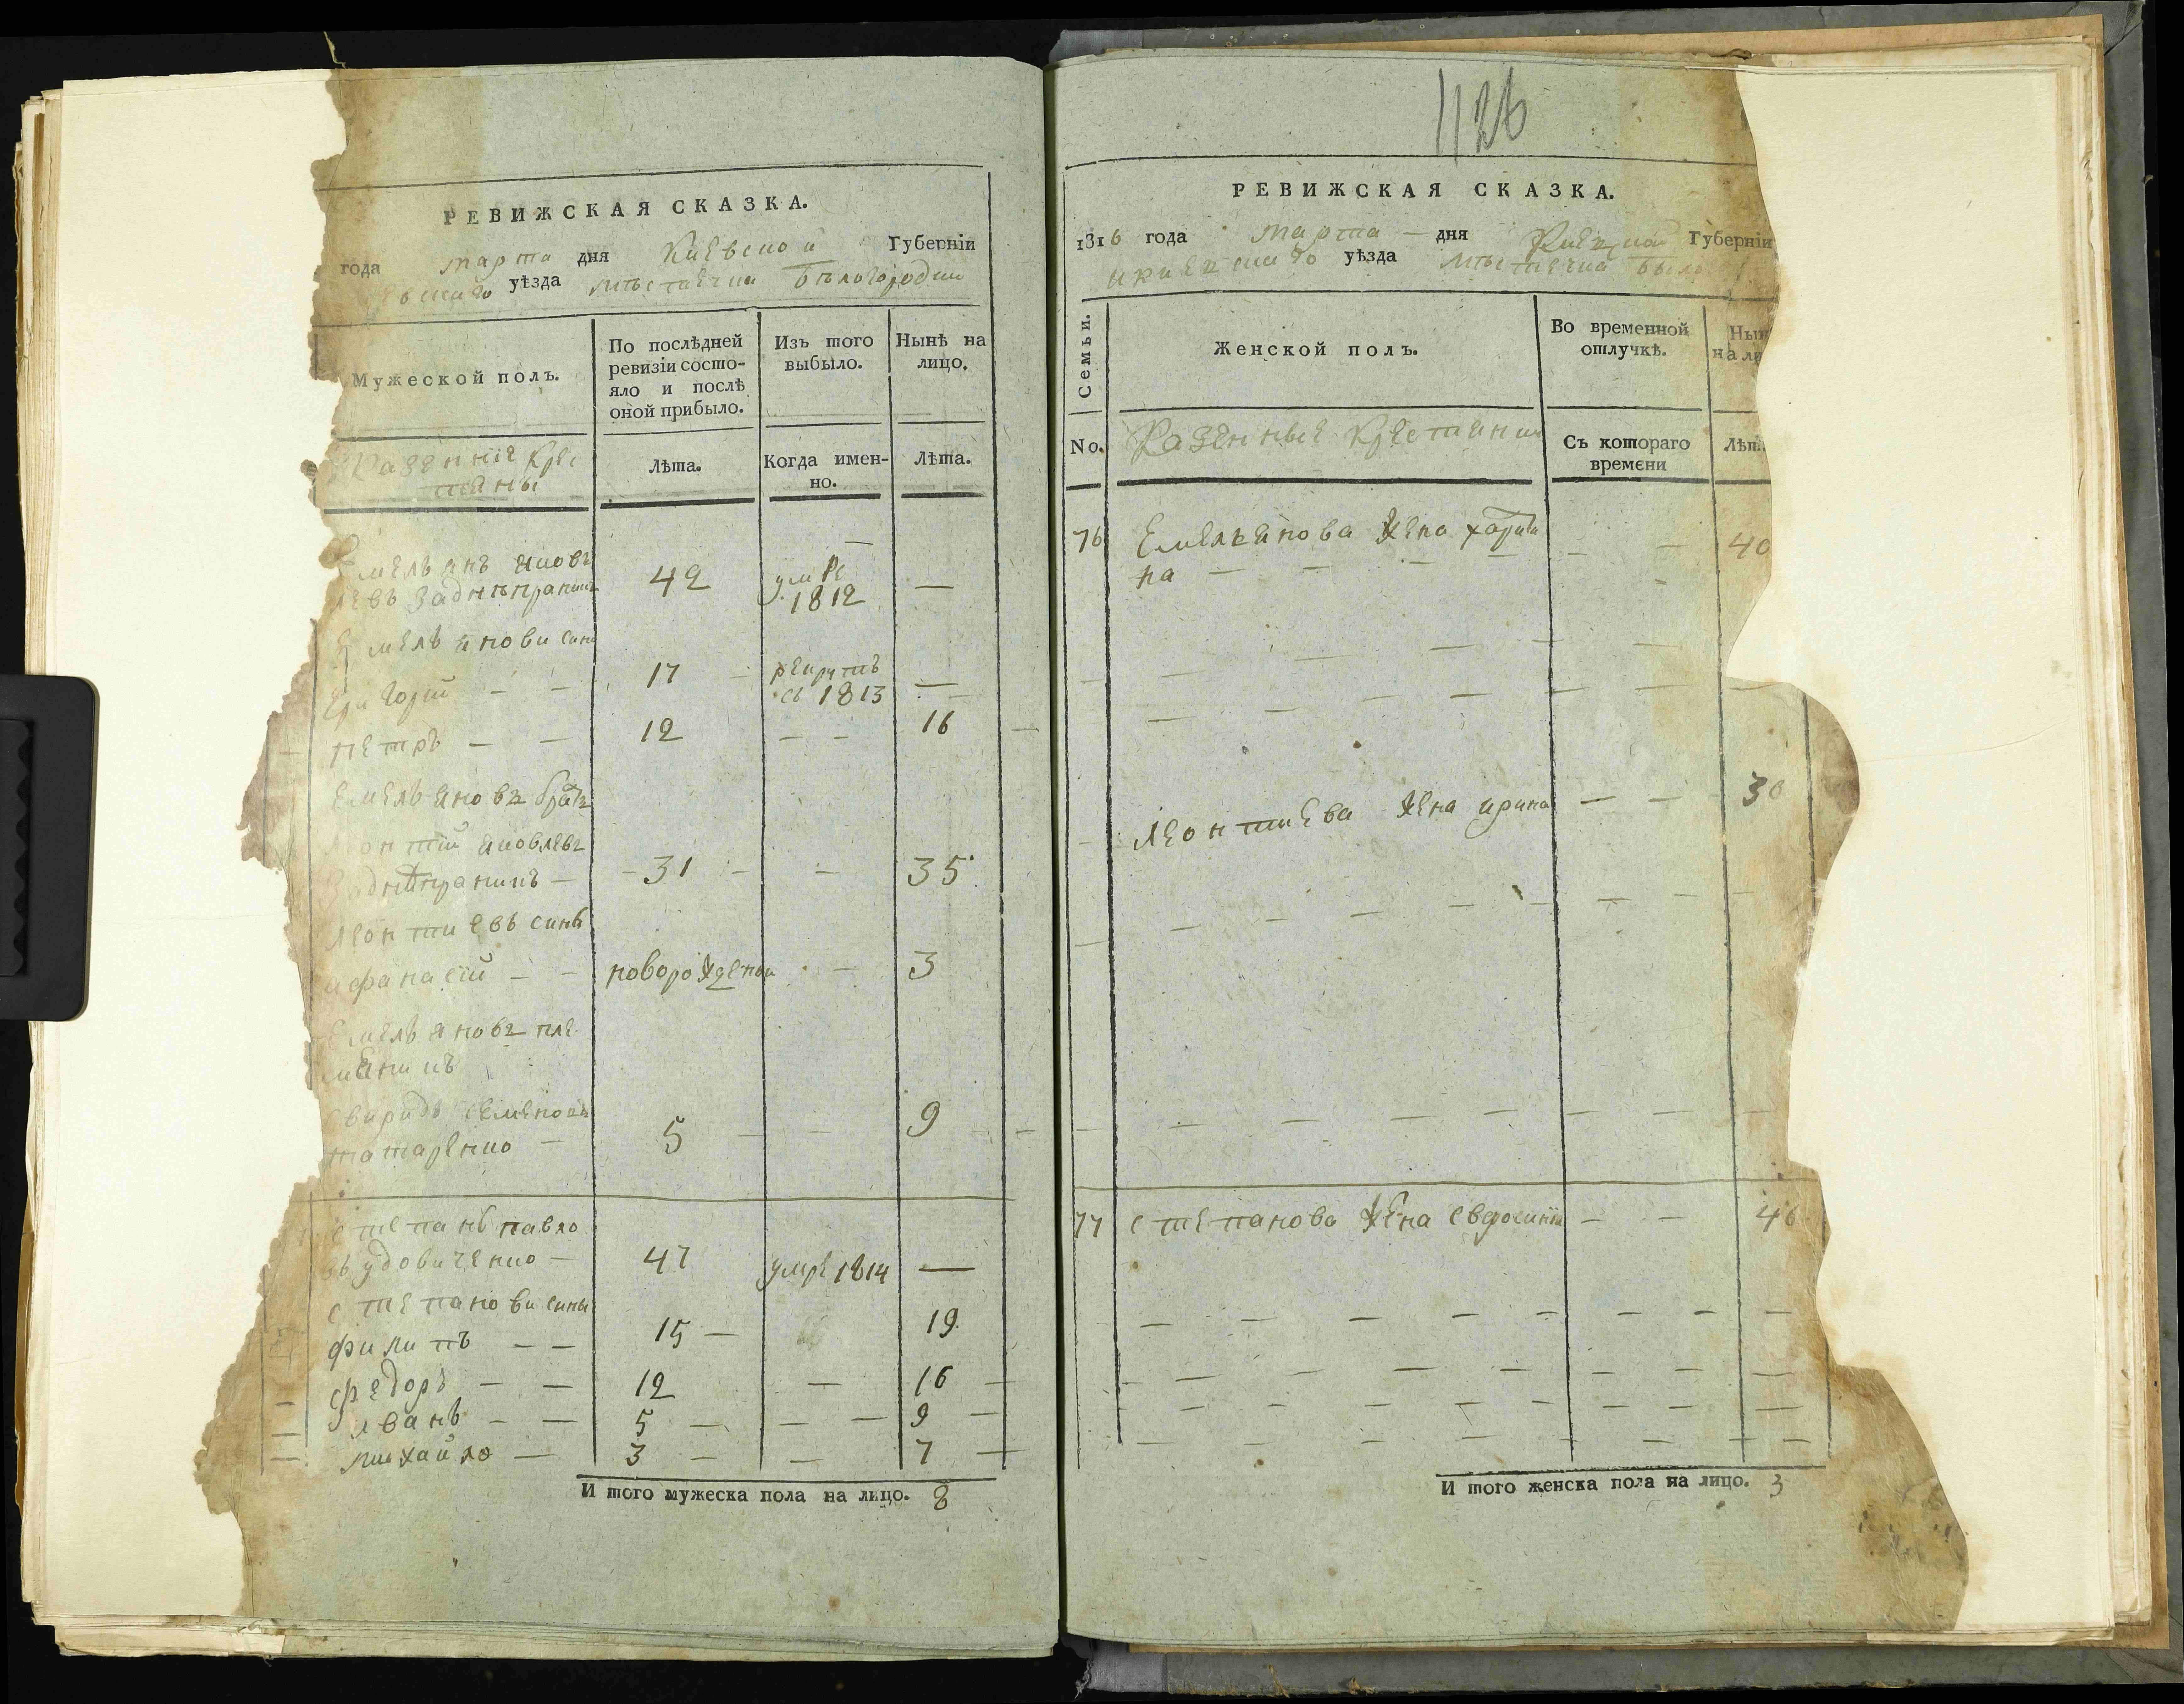 РЕВИЖСКАЯ СКАЗКА.
года марта дня Киевской Губерніи
уѣзда мѣстечка Бѣлогородки
Мужеской полъ.
По послѣдней
ревизіи состо-
яло и послѣ
оной прибыло.
Изъ того
выбыло.
Нынѣ на
лицо.
Казенніе Кре
стяны
Лѣта.
Когда имен-
но.
Лѣта.
Емельянъ Яков
левъ Заднѣпраний 42 умре 1812 —
Емельянови сини
Григорій — — 17 рекрутъ
съ 1813 —
Петръ — — 12 — — 16
Емельяновъ братъ
Леонтій Яковлевъ
Заднѣпраникъ — 31 — — 35
Леонтиевъ синъ
Афанасій — — новорожденни — 3
Емельяновъ пле
мяникъ
Свиридъ Семеновъ
Татаренко — 5 — — 9
Степанъ Павло
въ Удовиченко — 47 умре 1814 —
Степанови сины
Филипъ — — 15 — 19
Федоръ — — 12 — 16
Иванъ — — 5 — — — 9
Михайло — 3 — — 7
И того мужеска пола на лицо. 8
1126
РЕВИЖСКАЯ СКАЗКА.
1816 года марта — дня Губерніи
уѣзда мѣстечка
Семьи.
Женской полъ.
Во временной
отлучкѣ.
Нын
на ли
No.
Казенные Крестянки
Съ котораго
времени
Лѣт.
76 Емелянова жена Харити
на — — — — — 40
Леонтиева жена Ирина — — 30
77 Степанова жена Евфросинія — — 46
И того женска пола на лицо. 3